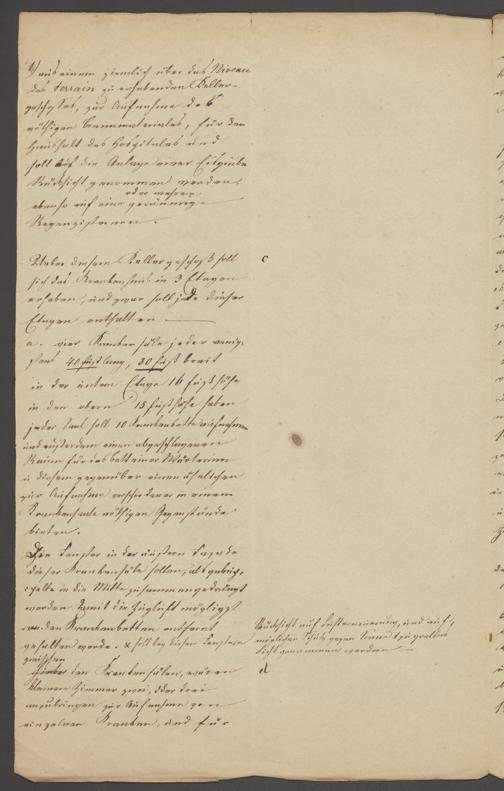 1/ aus einem ziemlich über das Niveau
des Terrain zu erhebenden Keller-
geschosses, zur Aufnahme des
nöthigen Brennmateriales, für den
Haushalt des Hospitales und
soll auf die Anlage einer Eisgrube
Rücksicht genommen werden,
oder mehrere
ebenso auf eine geräumige
Regenzisternen.
Ueber diesem Kellergeschoß soll
sich das Krankenhaus in 3 Etagen
erheben, und zwar soll jede dieser
Etagen enthalten
a. vier Krankensäle jeder wenig-
stens 40 Fuß lang, 30 Fuß breit
in der untern Etage 16 Fuß Höhe
in den obern 15 Fuß Höhe haben
jeder Saal soll 10 Krankenbette aufnehmen
und außerdem einen abgeschlagenen
Raum für das Bett einer Wärterinn
u diesem gegenüber einen ähnlichen
zur Aufnahme verschiedener in einem
Krankensaale nöthigen Gegenstände
bieten.
Die Fenster in der äußern Façade
dieser Krankensäle sollen, als
in die Mitte zusammengedrängt
werden damit die Zugluft möglichst
von den Krankenbetten entfernt
gehalten werde. x soll bey diesen Fenstern
zwischen
den Krankensälen, wären
kleinere Zimmer zwei, oder drei
anzubringen zur Aufnahme von
einzelnen Kranken, und für
c
Rücksicht auf Lufterneuerung, und auf
möglichen Schutz gegen Sonne u zu grelles
Licht genommen werden
d